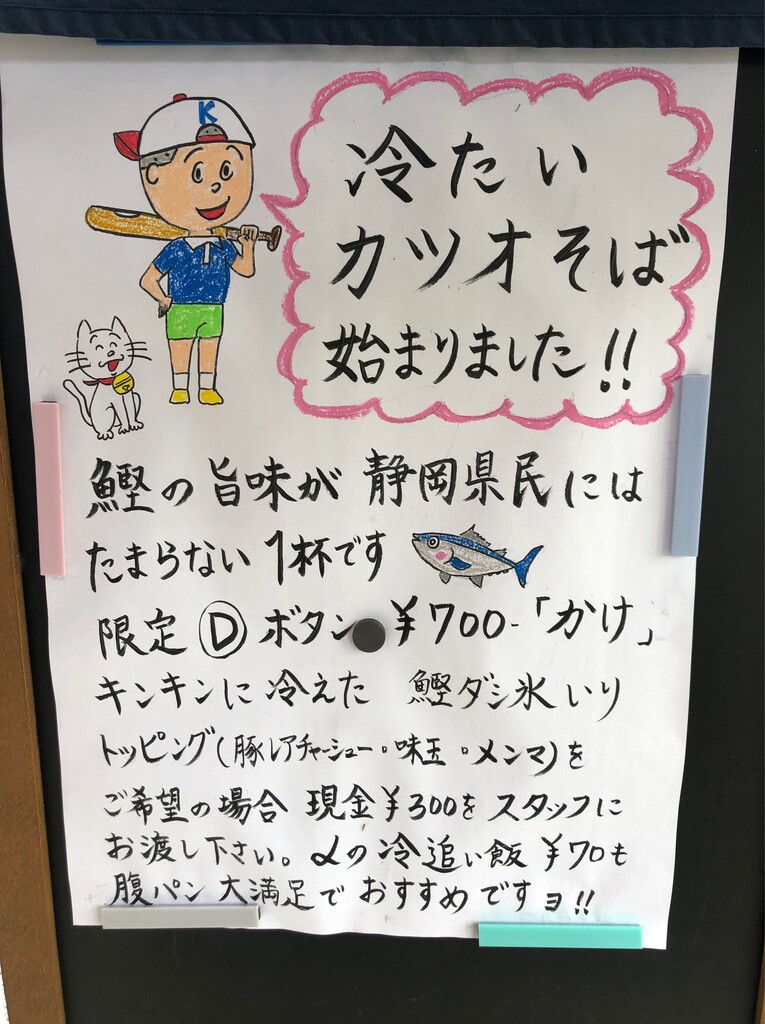 K
冷たい
カツオそば
始まりました!!
鰹の旨味が 静岡県民には
たまらない 1杯です
限定 Ⓓ ボタン ¥700-「かけ」
キンキンに冷えた 鰹ダシ氷いり
トッピング(豚レアチャーシュー・味玉・メンマ)を
ご希望の場合 現金¥300を スタッフに
お渡し下さい。〆の冷追い飯 ¥70も
腹パン 大満足で おすすめですョ!!